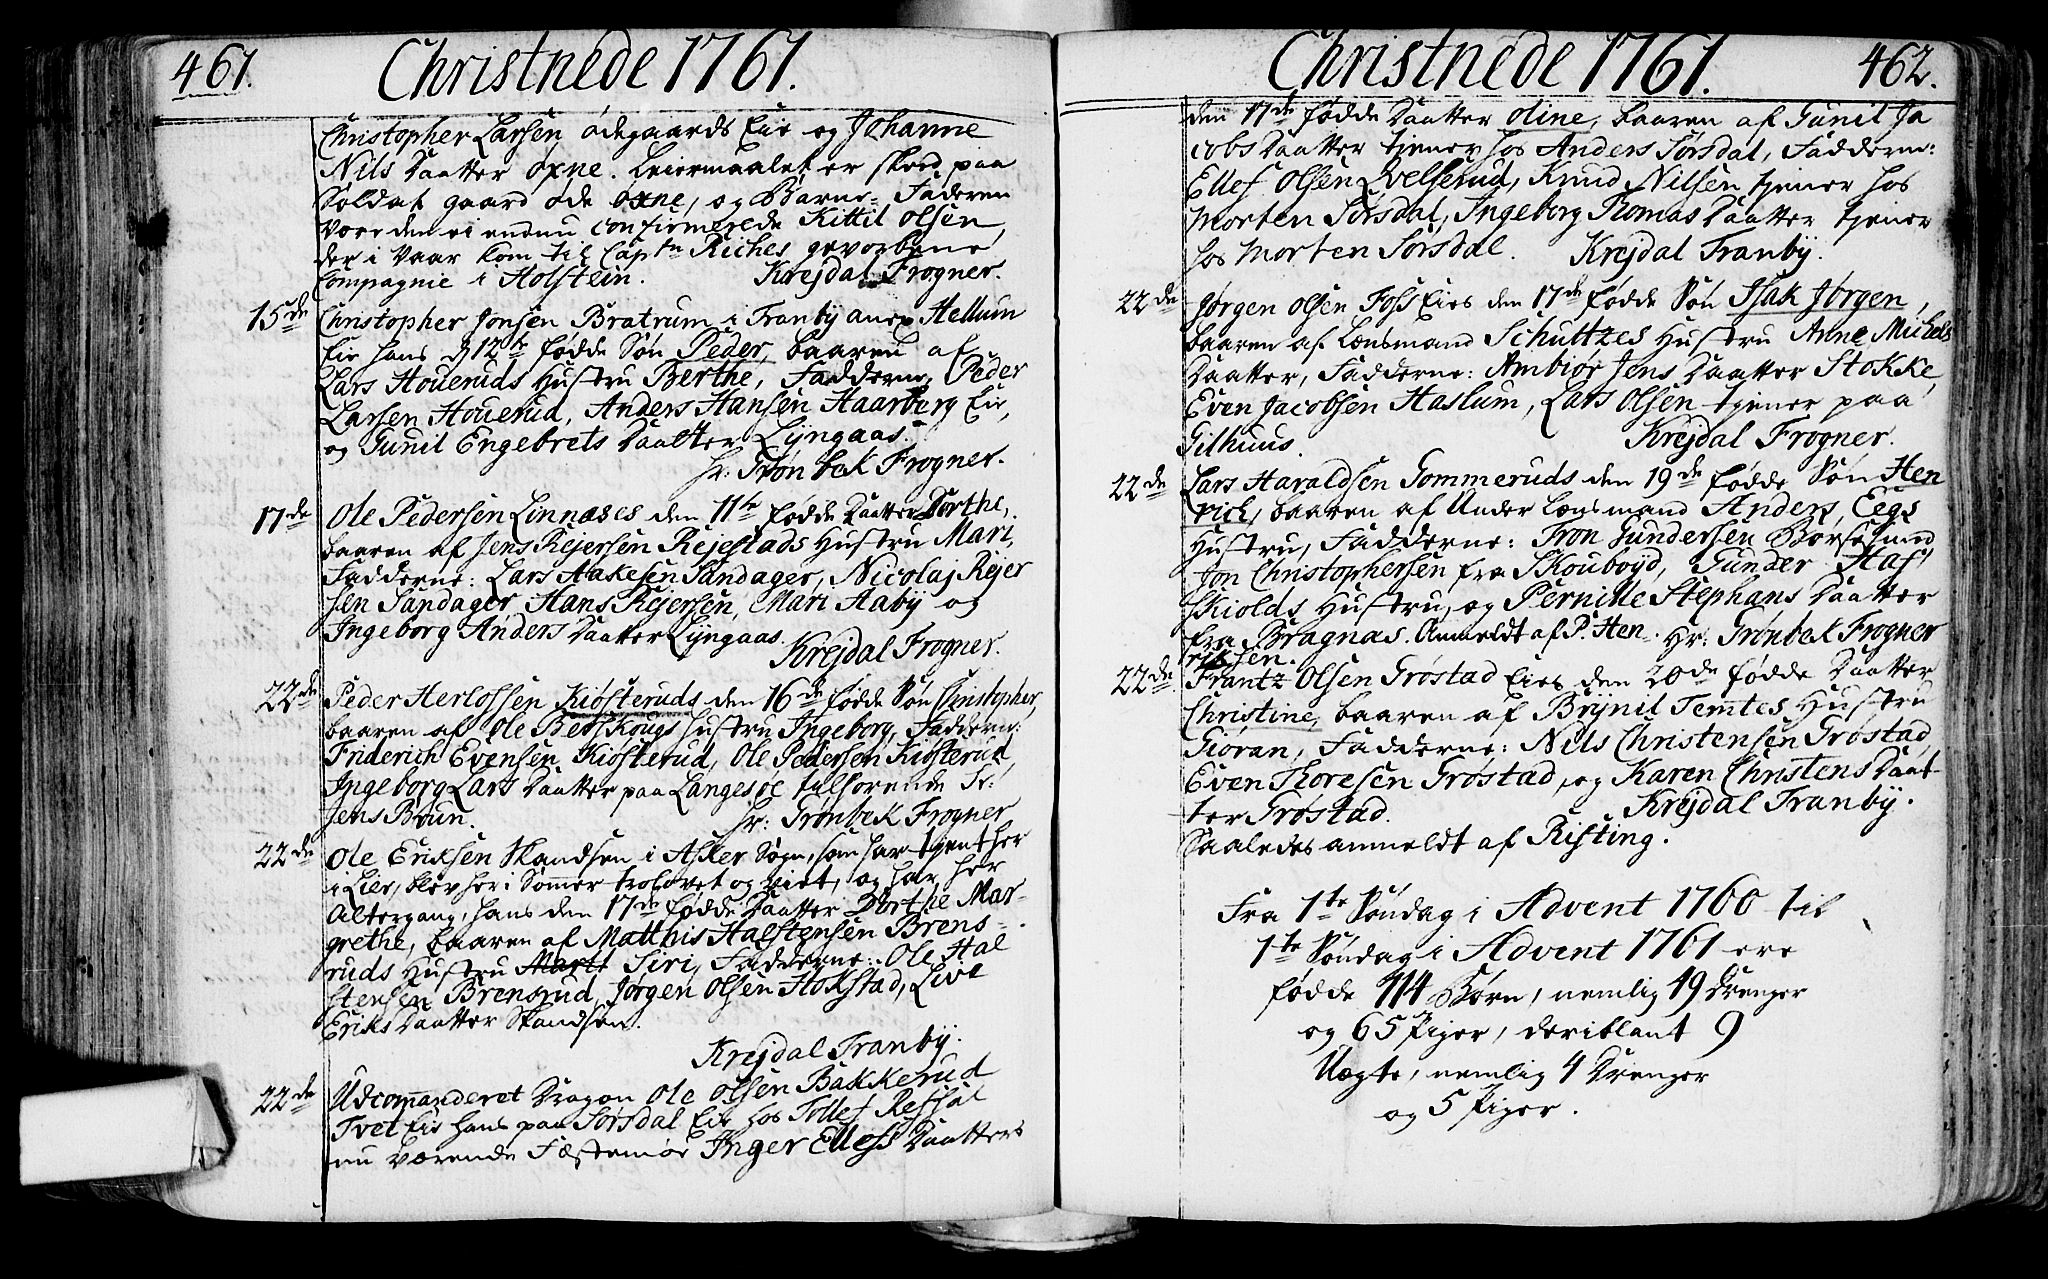 461.
Christnede 1761.
Christopher Larsen ödegaards Eie og Johanne
Nils Daatter Oxne. Leiermaalet er skeed paa
Soldat gaard öde oxne, og Barne-Faderen
var den ei endnu confirmerede Kittil Olsen,
der i Vaar kom til Captn Riches gevorbene
Compagnie i Holstein. Krejdal Frogner.
15de Christopher Jonsen Bratrum i Tranby anex Hellum
Eie hans d 12te födde Sön Peder, baaren af
Lars Houeruds Hustru Berthe, Fadderne, Peder
Larsen Houerud, Anders Hansen Haarberg Eie,
og Gunil Engebrets Daatter Lÿngaas.
Hr: Grönbek Frogner.
17de Ole Pedersen Linnæses den 11te födde Daatter Dorthe,
baaren af Jens Rejersen Rejestads Hustru Mari,
Fadderne: Lars Aakesen Sandager, Nicolaj Rejer
sen Sandager, Hans Rejersen, Mari Aabÿ og
Ingeborg Anders Daatter Lÿngaas.
Krejdal Frogner.
22de Peder Herlofssen Kiösteruds den 16de födde Sön Christopher,
baaren af Ole Berskougs Hustru Ingeborg, Fadderne:
Friderich Evensen Kiösterud, Ole Pedersen Kiösterud,
Ingeborg Lars Daatter paa Langesöe tilhörende Sr:
Jens Boun. Hr: Grönbek Frogner
22de Ole Eriksen Skandsen i Asker Sogn, som har tjent her
i Lier, blev her i Sommer trolovet og viet, og har her
Altergang, hans den 17de födde Daatter Dorthe Mar-
grethe, baaren af Matthis Halstensen Brens-
ruds Hustru Marit Siri, Fadderne: Ole Hal
stensen Brensrud, Jörgen Olsen Stokstad, Live
Eriks Daatter Skandsen.
Krejdal Tranbÿ.
22de Udcommanderet Dragon Ole Olsen Bakkerud
Tvet Eie hans paa Sörsdal Eie hos Tollef Refsal
nu værende Fæstemöe Inger Ellefs Daatters
Christnede 1761. 462.
den 17de födde Daatter Oline, baaren af Gunil Ja
cobs Daatter tjener hos Anders Sörsdal, Fadderne:
Ellef Olsen Qvelserud, Knud Nilsen tjener hos
Morten Sörsdal, Ingeborg Thomas Daatter tjener
hos Morten Sörsdal. Krejdal Tranbÿ.
22de Jörgen Olsen Foss Eies den 17de födde Sön Isak Jörgen,
baaren af Lensmand Schuttzes Hustru Anne Michels
Daatter, Fadderne: Ambiör Jens Daatter Stokke,
Even Jacobsen Haslum, Lars Olsen tjener paa
Gilhuus. Krejdal Frogner.
22de Lars Haraldsen Gommeruds den 19de födde Sön Hen
rich, baaren af Under Lensmand Anders Eegs
Hustru, Fadderne: Tron Gundersen Borsesund
Jon Christophersen fra Skouboÿd, Gunder Haf
Skiolds Hustru, og Pernille Stephans Daatter
fra Bragnæs. Anmeldt af P. Hen- Hr: Grönbek Frogner
riksen.
22de Frantz Olsen Gröstad Eies den 20de födde Daatter
Christine, baaren af Brÿnil Temtes Hustru
Giöran, Fadderne: Nils Christensen Gröstad,
Even Thoresen Gröstad, og Karen Christens Daat-
ter Gröstad. Krejdal Tranbÿ.
Saaledes anmeldt af Risting.
Fra 1te Söndag i Advent 1760 til
1te Söndag i Advent 1761 ere
födde 114 Börn, nemlig 49 Drenger
og 65 Piger, deriblant 9
Uægte, nemlig 4 Drenger
og 5 Piger.